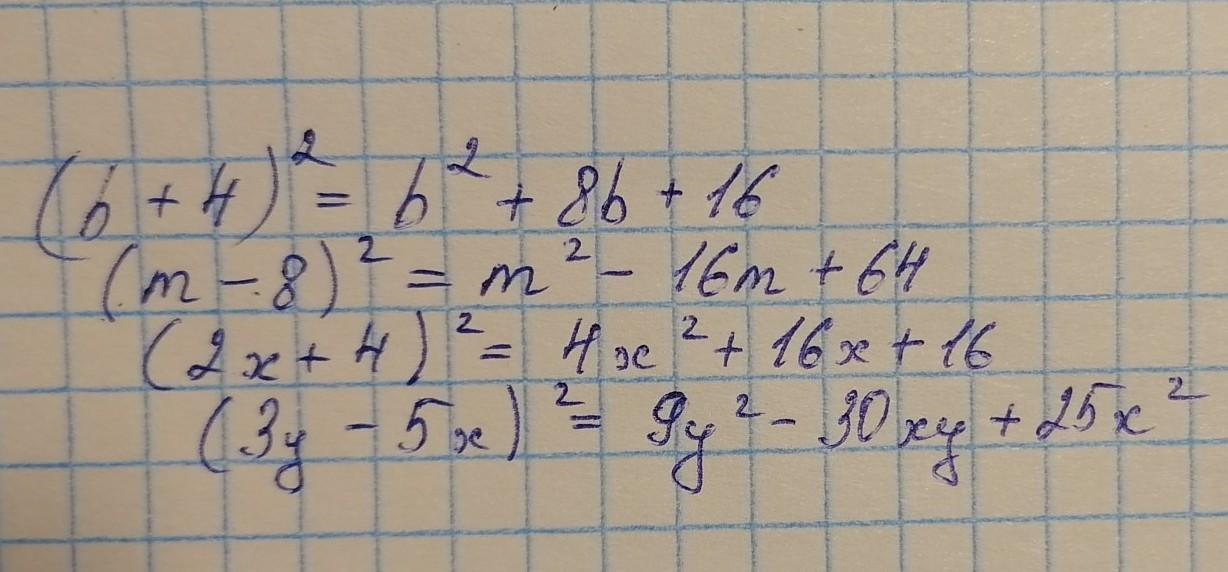 (b + 4)² = b² + 8b + 16
(m - 8)² = m² - 16m + 64
(2x + 4)² = 4x² + 16x + 16
(3y - 5x)² = 9y² - 30xy + 25x²